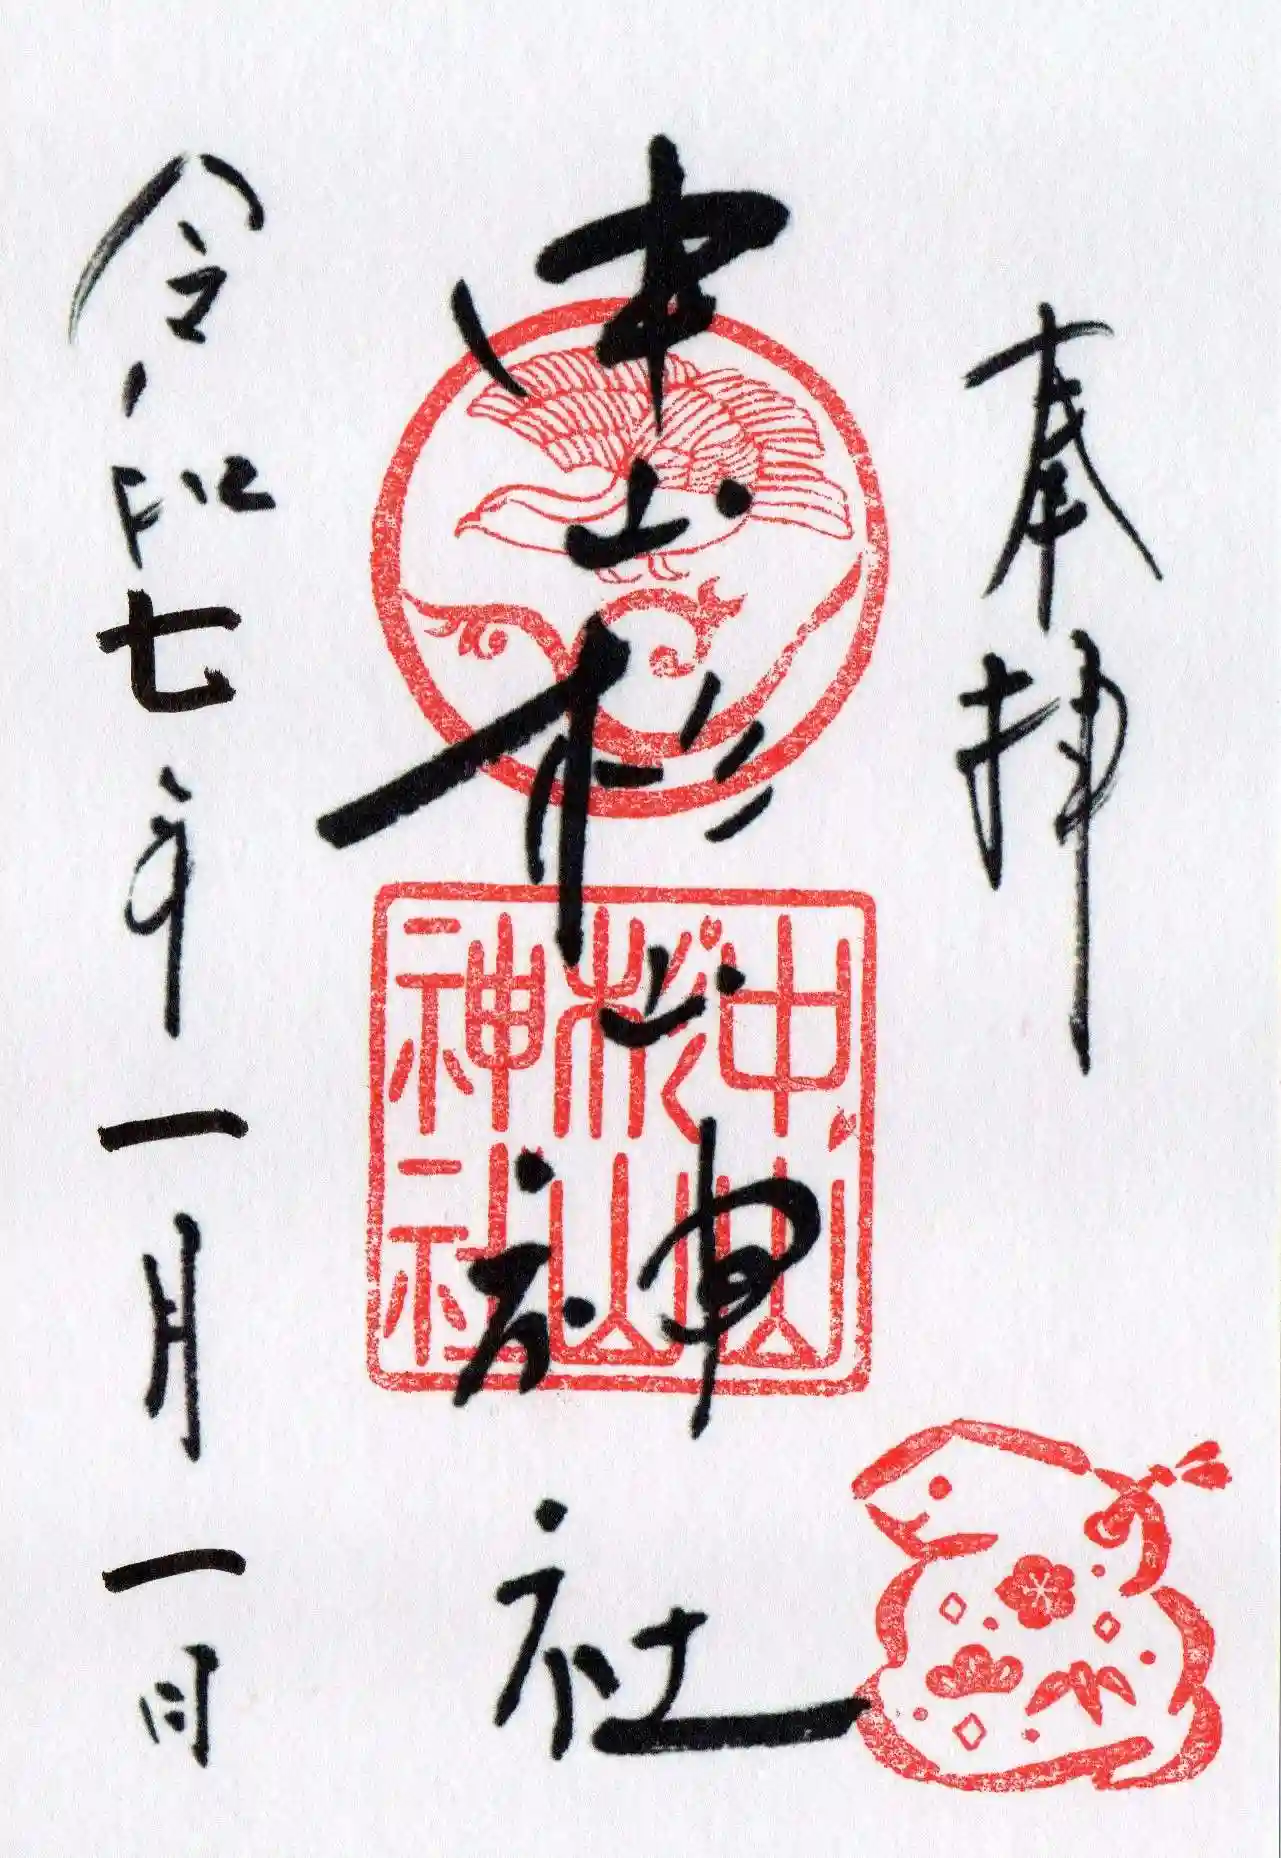 奉拝
中山杉山神社
中山
杉山
神社
令和七年一月一日